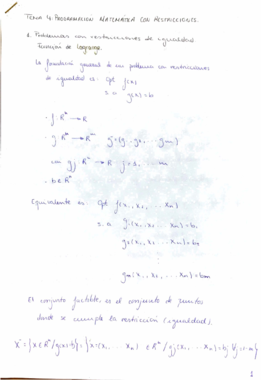 TEMA 4: PROGRAMACIÓN MATEMÁTICA CON RESTRICCIONES
1. Problemas con restricciones de igualdad
Función de Lagrange.
La formulación general de un problema con restricciones
de igualdad es: Opt f(x)
s.a g(x) = b
· f: Rⁿ → R
· g: Rⁿ → Rᵐ g = (g₁, g₂, ... gₘ)
con gj: Rⁿ → R j = 1, ... m
· b ∈ Rᵐ
Equivalente a: Opt f(x₁, x₂, ... xₙ)
s.a g₁(x₁, ... xₙ) = b₁
g₂(x₁, x₂, ... xₙ) = b₂
gₘ(x₁, x₂, ... xₙ) = bₘ
El conjunto factible es el conjunto de puntos
donde se cumple la restricción (igualdad).
X = {x ∈ Rⁿ / g(x) = b} = {x = (x₁, ... xₙ) ∈ Rⁿ / gj(x₁, ... xₙ) = bj ∀j = 1...m}
1